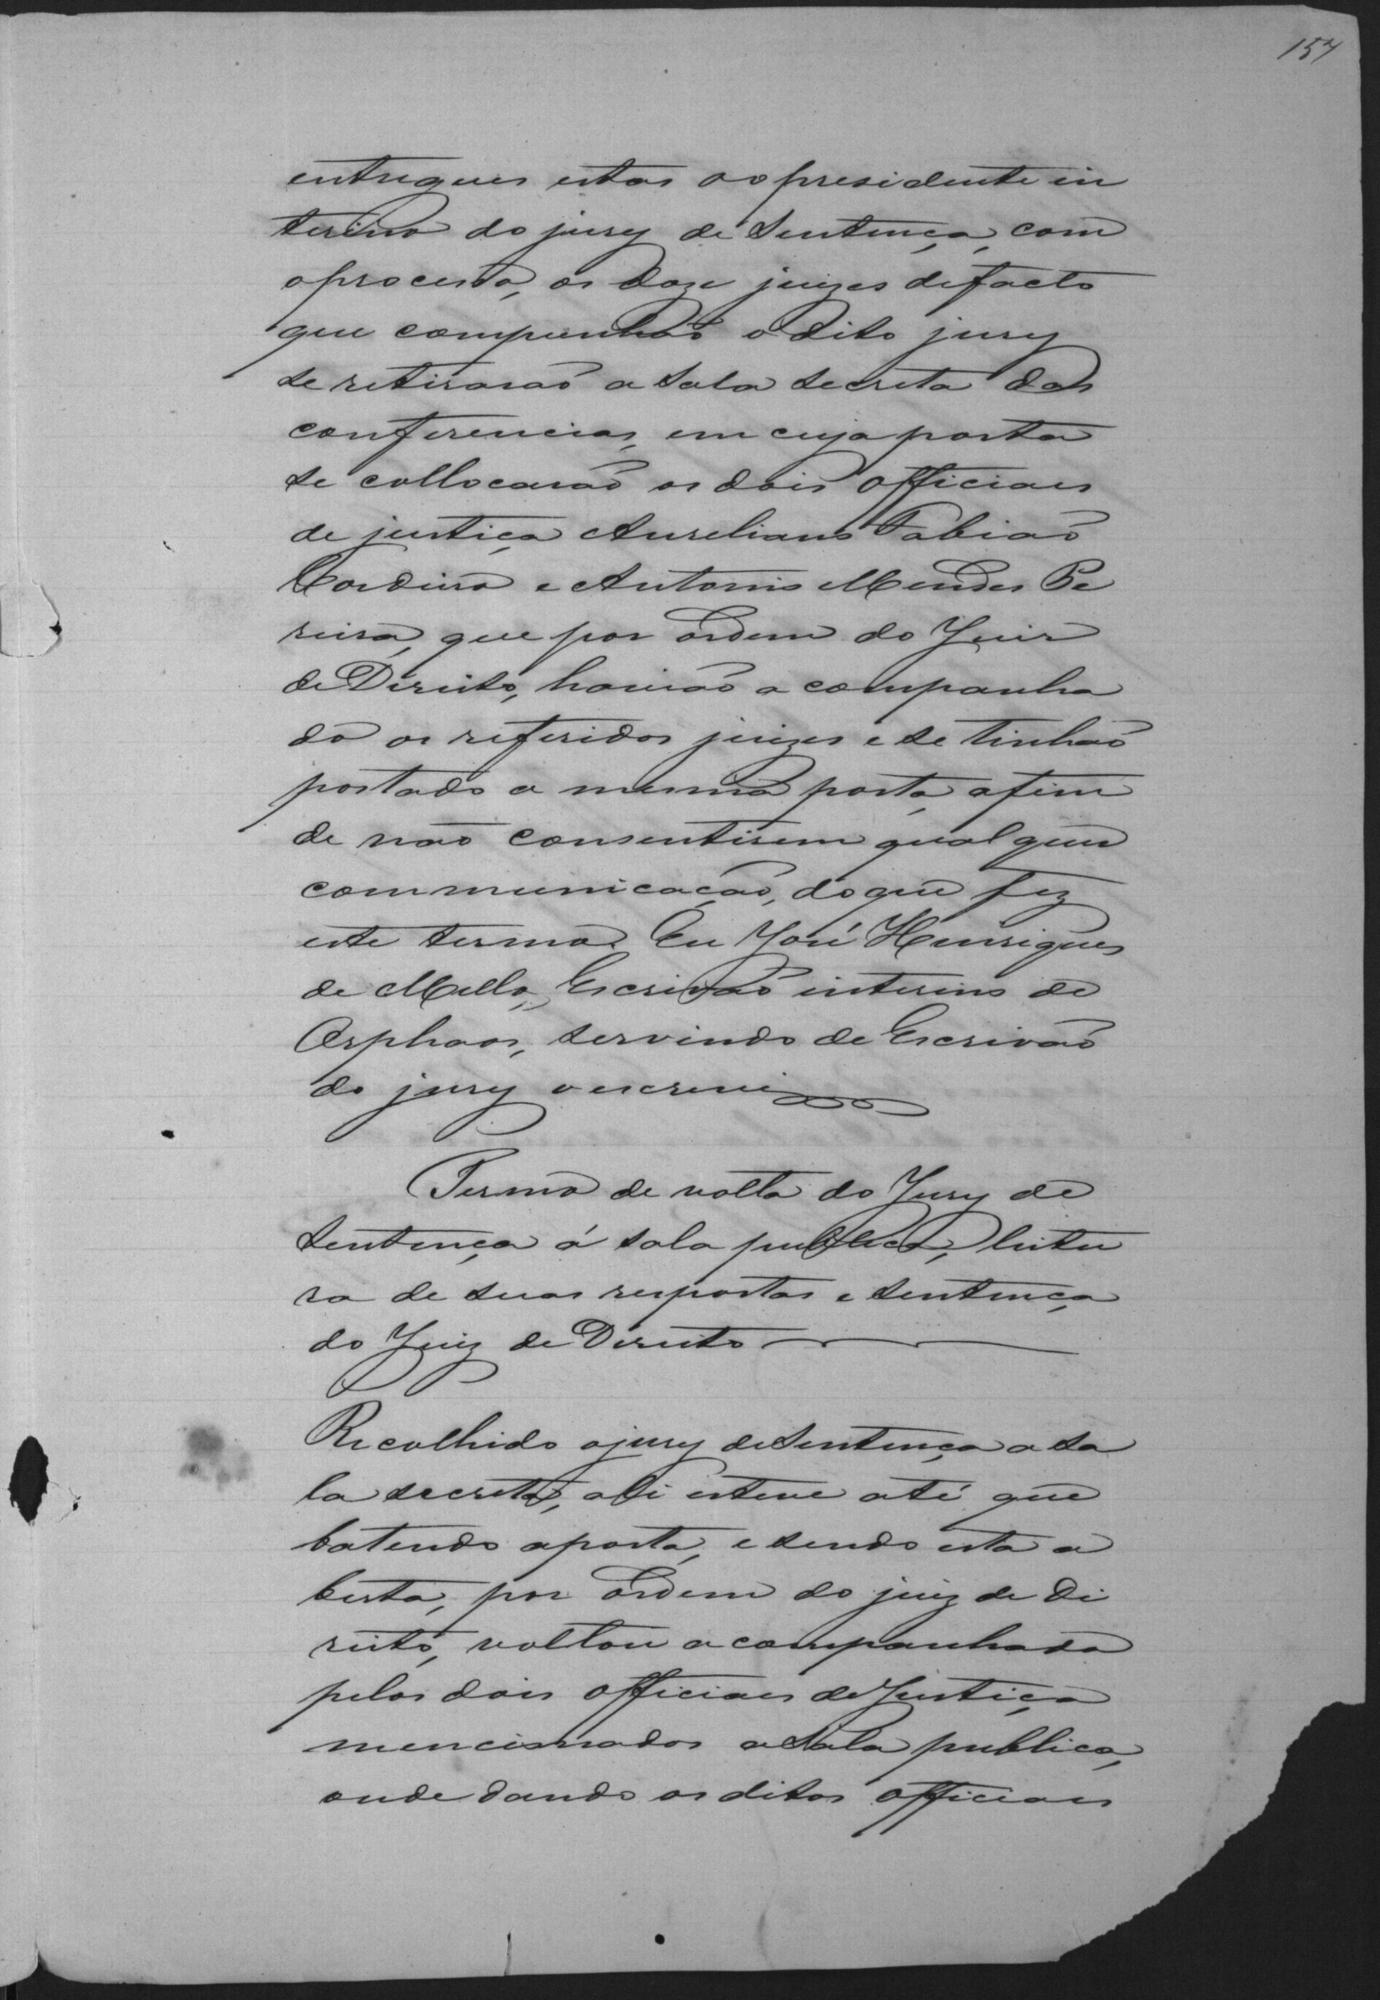 157
entregues estas ao presidente in
terino do jury de sentença, com
o processo, os doze juizes de facto
que compunhão o dito jury
se retirarão a sala secreta das
conferencias, em cuja porta
se collocarão os dois officiaes
de justiça Aureliano Fabião
Cordeiro e Antonio Mendes Pe
reira, que por ordem do Juiz
de Direito, havião acompanha
do os referidos juizes e se tinhão
postado a mesma porta, afim
de não consentirem qualquer
communicação, do que fez
este termo. Eu José Henriques
de Mello, Escrivão interino de
Orphaos, servindo de Escrivão
do jury o escrevi
Termo de volta do Jury de
sentença á sala publica, leitu
ra de suas respostas e sentença
do Juiz de Direito
Recolhido o jury de sentença a sa
la secreta, ali esteve até que
batendo a porta, e sendo esta a
berta, por ordem do juiz de Di
reito, voltou acompanhado
pelos dois officiaes de Justiça
mencionados a sala publica,
onde dando os ditos officiaes